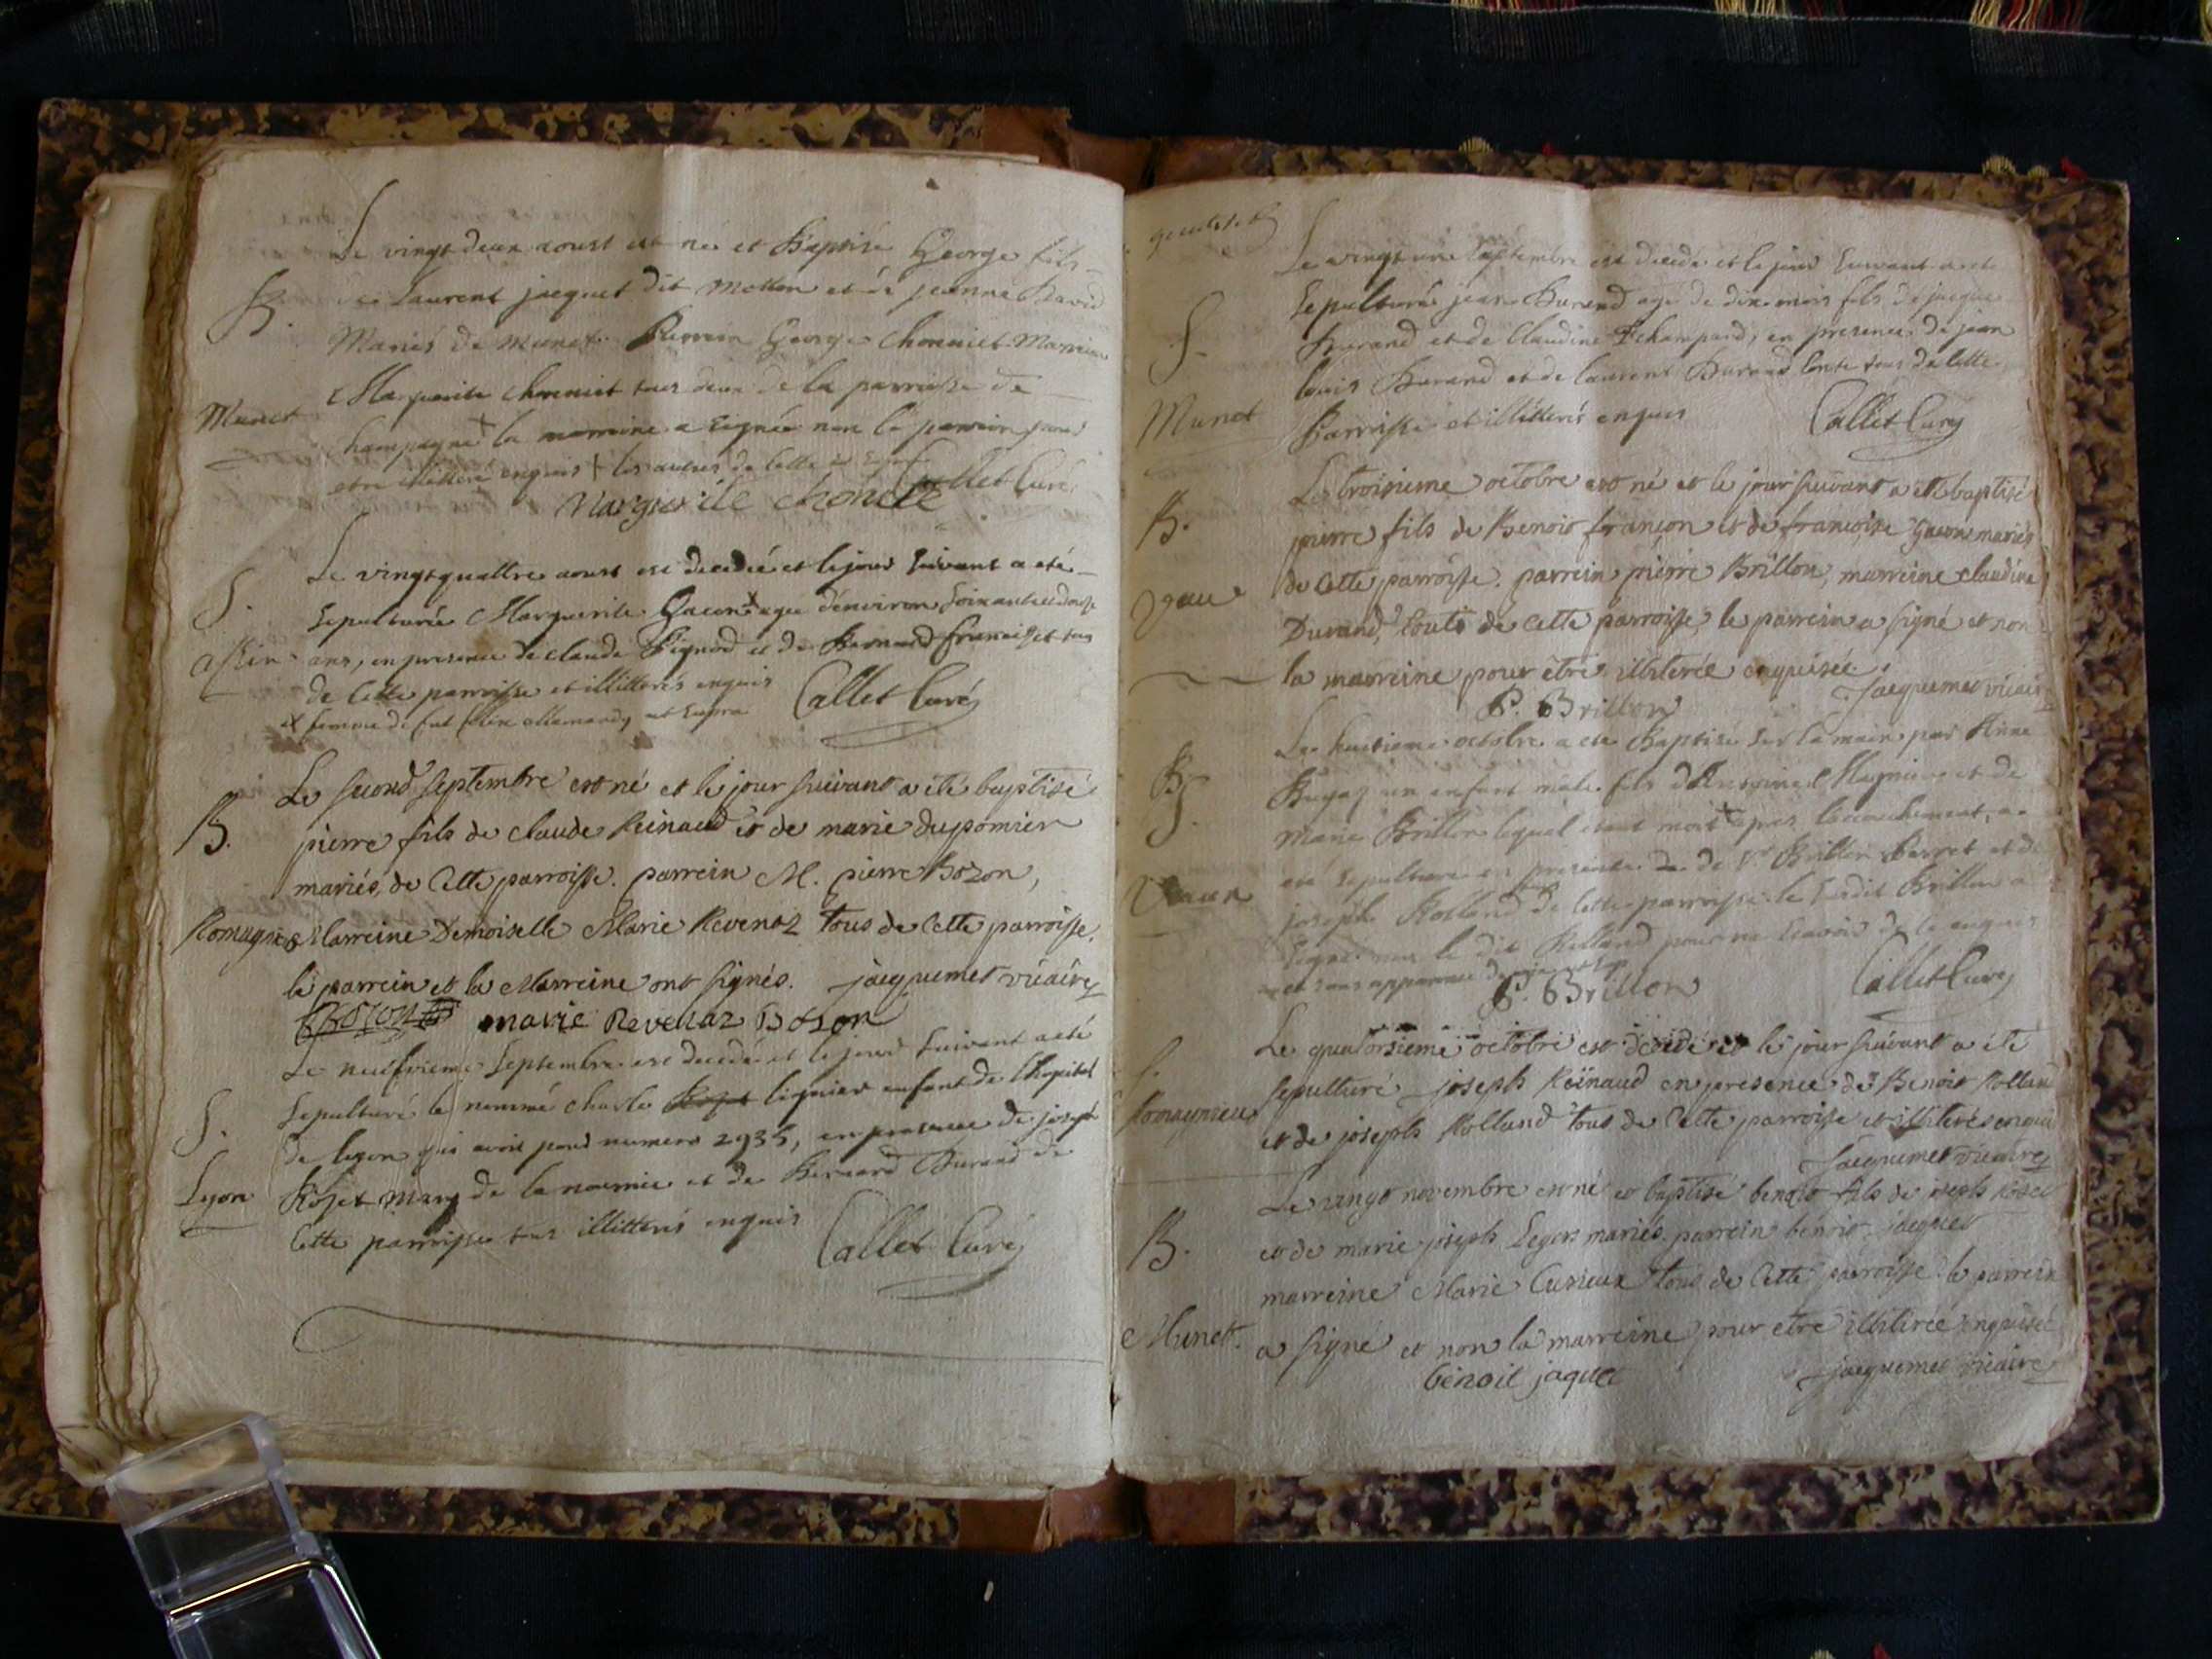 Le vingt deux aoust est né et Baptisé George fils
B.
de Laurent jacquet dit Mollon et de jeanne David
Mariés de Munet. Parrein George Choniet Marreine
Marguerite Choniet tous deux de la parroisse de
Munet
Champagne + la marreine a Signée non le parrein pour
etre illitteré enquis + les autres de cette
Marguerite Chonete
Callet Curé
Le vingt quattre aoust est decedée et le jour Suivant a eté
S.
Sepulturée Marguerite Gacon + agée d'environ Soixante et douse
ans, en presence de claude Pignod et de Bernard françiset tous
de Cette parroisse et illitterés enquis
Callet Curé
+ femme de fut
Le second septembre est né et le jour suivant a été baptisé
B.
pierre fils de claude Reinaud et de marie dupomier
mariés, de Cette parroisse. parrein M. pierre Bozon,
Romagnieu
Marreine Demoiselle Marie Revenaz tous de Cette parroisse.
le parrein et la Marreine ont signés. jacquemet vicaire
Bozon marie Revenaz Bozon
Le neufvieme Septembre est decedé et le jour Suivant a eté
Sepulturé le nommé charle lignier enfant de l'hopital
S.
de lyon qui avoit pour numero 2935, en presence de joseph
Lyon
Rojet mary de la nourrice et de Bernard Durand de
Cette parroisse tous illitterés enquis
Callet Curé
Le vingt une Septembre est decedé et le jour Suivant a eté
Sepulturé jean Durand agé de dix mois fils de jacque
S.
Durand et de Claudine Dechampard, en presence de jean
louis Durand et de laurent Durand tous de Cette
Munet
Parroisse et illitterés enquis
Callet Curé
Le troisieme octobre est né et le jour suivant a été baptisé
B.
pierre fils de Benoit françon et de francoise Gacon mariés
de Cette parroisse. parrein pierre Brillon, marreine claudine
Durand, touts de cette parroisse, le parrein a signé et non
la marreine pour être illiterée enquisée.
P. Brillon
Jacquemet vicaire
Le huitieme octobre a eté Baptisé Sur la main par Anne
B
S.
Bugaz un enfant mâle fils d'Antoine Magnin et de
Marie Brillon lequel etant mort + apres l'accouchement, a
eté Sepulturé en presence de Brillon et de
Vaux
joseph Rolland tous de Cette parroisse le Susdit Brillon a
Signé non le dit Rolland pour ne Scavoir de ce enquis
P. Brillon
Callet Curé
Le quatorsieme octobre est decedé et le jour suivant a été
S.
sepulturé joseph Reïnaud en presence de Benoit Rolland
Romagnieu
et de joseph Rolland tous de Cette parroisse et illiterés enquis
Jacquemet vicaire
Le vingt novembre est né et baptisé benoit fils de joseph Roset
B.
et de marie joseph Leger mariés. parrein benoit jacquet
marreine Marie Cusieux tous de Cette parroisse. le parrein
Munet.
a signé et non la marreine pour etre illiterée enquisé
benoit jaquet
jacquemet vicaire